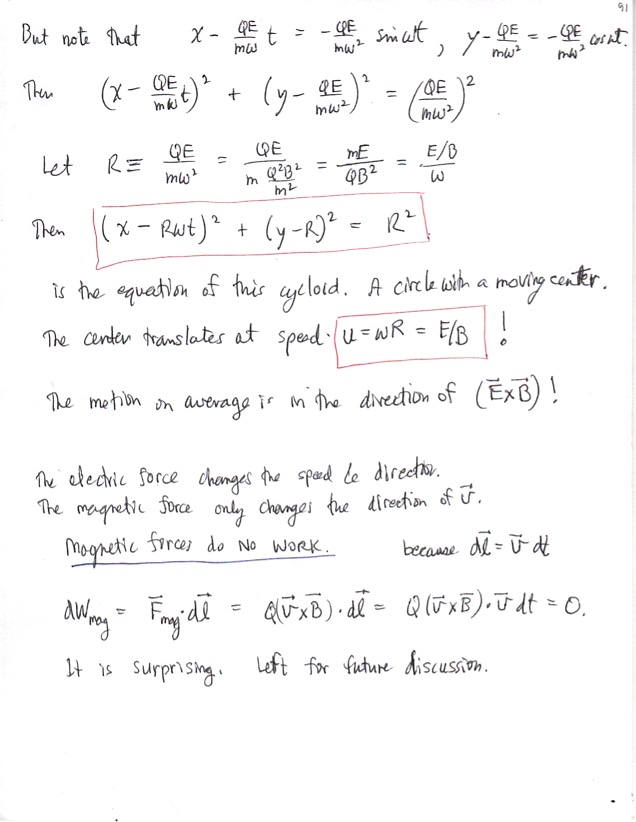 91
But note that x - QE/mω t = -QE/mω² sin ωt, y - QE/mω² = -QE/mω² cos ωt.
Then (x - QE/mω t)² + (y - QE/mω²)² = (QE/mω²)²
Let R ≡ QE/mω² = QE/(m Q²B²/m²) = mE/QB² = (E/B)/ω
Then (x - Rωt)² + (y - R)² = R²
is the equation of this cycloid. A circle with a moving center.
The center translates at speed. u = ωR = E/B !
The motion on average is in the direction of (E⃗×B⃗)!
The electric force changes the speed & direction.
The magnetic force only changes the direction of v⃗.
Magnetic forces do NO WORK. because dl⃗ = v⃗ dt
dW_mag = F⃗_mag · dl⃗ = Q(v⃗×B⃗) · dl⃗ = Q(v⃗×B⃗) · v⃗ dt = 0.
It is surprising. Left for future discussion.